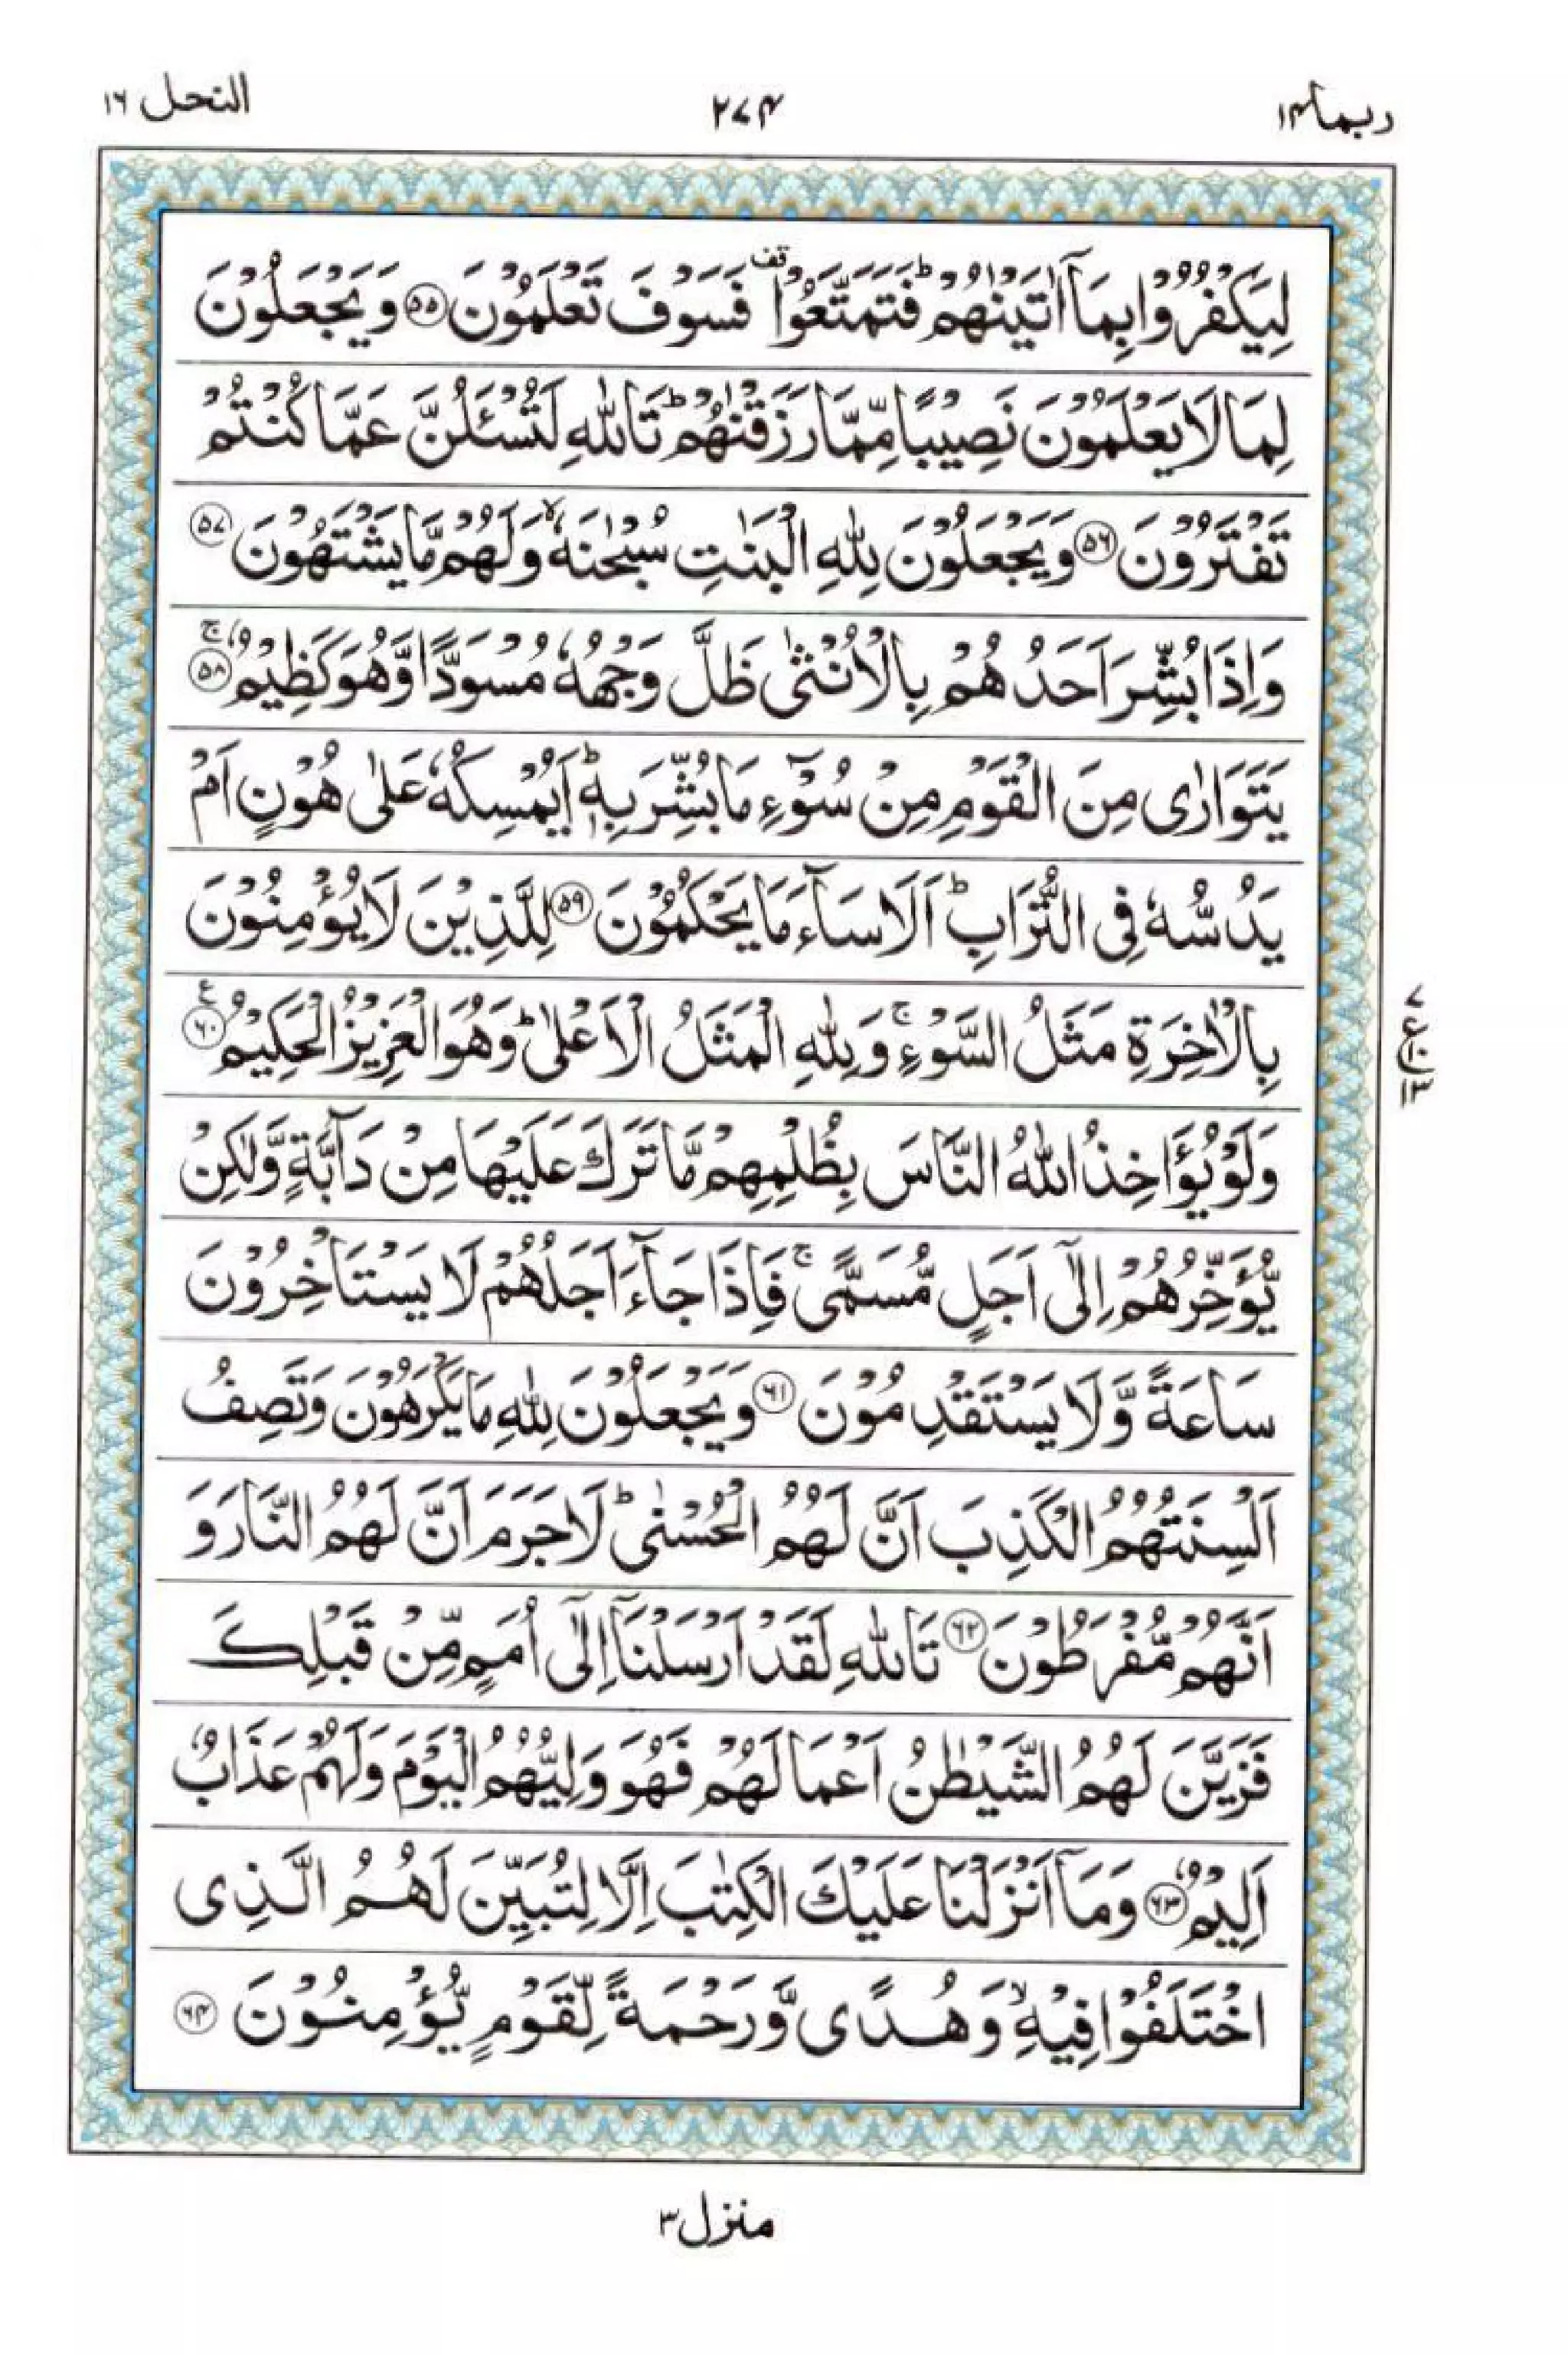 ربما ۱۴
۲۷۴
النحل ۱۶
لِيَكْفُرُوْا بِمَاۤ اٰتَيْنٰهُمْ ؕ فَتَمَتَّعُوْا ۫ قف فَسَوْفَ تَعْلَمُوْنَ ۝۵۵ وَيَجْعَلُوْنَ
لِمَا لَا يَعْلَمُوْنَ نَصِيْبًا مِّمَّا رَزَقْنٰهُمْ ؕ تَاللّٰهِ لَتُسْـَٔلُنَّ عَمَّا كُنْتُمْ
تَفْتَرُوْنَ ۝۵۶ وَيَجْعَلُوْنَ لِلّٰهِ الْبَنٰتِ سُبْحٰنَهٗ ۙ وَلَهُمْ مَّا يَشْتَهُوْنَ ۝۵۷
وَاِذَا بُشِّرَ اَحَدُهُمْ بِالْاُنْثٰى ظَلَّ وَجْهُهٗ مُسْوَدًّا وَّهُوَ كَظِيْمٌ ۝۵۸ ۚ
يَتَوَارٰى مِنَ الْقَوْمِ مِنْ سُوْٓءِ مَا بُشِّرَ بِهٖ ؕ اَيُمْسِكُهٗ عَلٰى هُوْنٍ اَمْ
يَدُسُّهٗ فِى التُّرَابِ ؕ اَلَا سَآءَ مَا يَحْكُمُوْنَ ۝۵۹ لِلَّذِيْنَ لَا يُؤْمِنُوْنَ
بِالْاٰخِرَةِ مَثَلُ السَّوْءِ ۚ وَلِلّٰهِ الْمَثَلُ الْاَعْلٰى ؕ وَهُوَ الْعَزِيْزُ الْحَكِيْمُ ۝۶۰ ع
۷ ع ۱۰ ۱۳
وَلَوْ يُؤَاخِذُ اللّٰهُ النَّاسَ بِظُلْمِهِمْ مَّا تَرَكَ عَلَيْهَا مِنْ دَآبَّةٍ وَّلٰكِنْ
يُّؤَخِّرُهُمْ اِلٰٓى اَجَلٍ مُّسَمًّى ۚ فَاِذَا جَآءَ اَجَلُهُمْ لَا يَسْتَاْخِرُوْنَ
سَاعَةً وَّلَا يَسْتَقْدِمُوْنَ ۝۶۱ وَيَجْعَلُوْنَ لِلّٰهِ مَا يَكْرَهُوْنَ وَتَصِفُ
اَلْسِنَتُهُمُ الْكَذِبَ اَنَّ لَهُمُ الْحُسْنٰى ؕ لَا جَرَمَ اَنَّ لَهُمُ النَّارَ وَ
اَنَّهُمْ مُّفْرَطُوْنَ ۝۶۲ تَاللّٰهِ لَقَدْ اَرْسَلْنَاۤ اِلٰٓى اُمَمٍ مِّنْ قَبْلِكَ
فَزَيَّنَ لَهُمُ الشَّيْطٰنُ اَعْمَالَهُمْ فَهُوَ وَلِيُّهُمُ الْيَوْمَ وَلَهُمْ عَذَابٌ
اَلِيْمٌ ۝۶۳ وَمَاۤ اَنْزَلْنَا عَلَيْكَ الْكِتٰبَ اِلَّا لِتُبَيِّنَ لَهُمُ الَّذِى
اخْتَلَفُوْا فِيْهِ ۙ وَهُدًى وَّرَحْمَةً لِّقَوْمٍ يُّؤْمِنُوْنَ ۝۶۴
منزل ۳